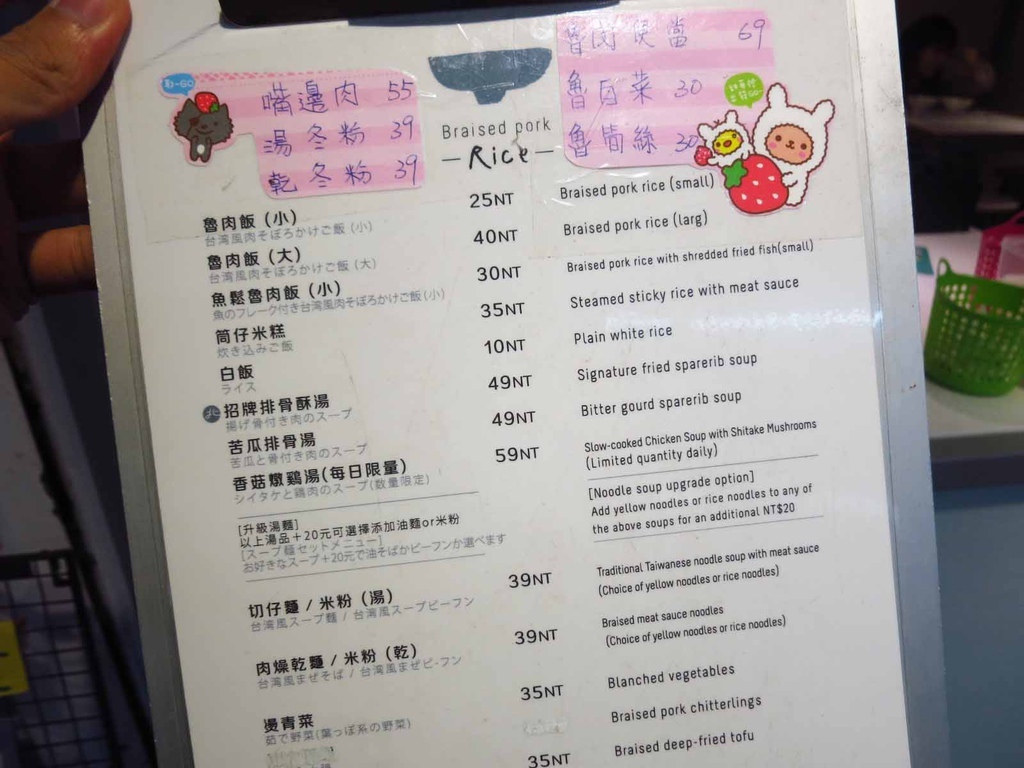 嘴邊肉 55
湯冬粉 39
乾冬粉 39
魯肉便當 69
魯白菜 30
魯筍絲 30
Braised pork
Rice
魯肉飯 (小) 25NT Braised pork rice (small)
台湾風肉そぼろかけご飯 (小)
魯肉飯 (大) 40NT Braised pork rice (larg)
台湾風肉そぼろかけご飯 (大)
魚鬆魯肉飯 (小) 30NT Braised pork rice with shredded fried fish(small)
魚のフレーク付き台湾風肉そぼろかけご飯(小)
筒仔米糕 35NT Steamed sticky rice with meat sauce
炊き込みご飯
白飯 10NT Plain white rice
ライス
北 招牌排骨酥湯 49NT Signature fried sparerib soup
揚げ骨付き肉のスープ
苦瓜排骨湯 49NT Bitter gourd sparerib soup
苦瓜と骨付き肉のスープ
香菇燉鷄湯(每日限量) 59NT Slow-cooked Chicken Soup with Shitake Mushrooms
シイタケと鶏肉のスープ(数量限定) (Limited quantity daily)
[升級湯麵]
以上湯品+20元可選擇添加油麵or米粉
[スープ麺セットメニュー]
お好きなスープ+20元で油そばかビーフンか選べます
[Noodle soup upgrade option]
Add yellow noodles or rice noodles to any of
the above soups for an additional NT$20
切仔麵 / 米粉 (湯) 39NT Traditional Taiwanese noodle soup with meat sauce
台湾風スープ麺 / 台湾風スープビーフン (Choice of yellow noodles or rice noodles)
肉燥乾麵 / 米粉 (乾) 39NT Braised meat sauce noodles
台湾風まぜそば / 台湾風まぜビ-フン (Choice of yellow noodles or rice noodles)
燙青菜 35NT Blanched vegetables
茹で野菜(葉っぱ系の野菜)
Braised pork chitterlings
35NT Braised deep-fried tofu